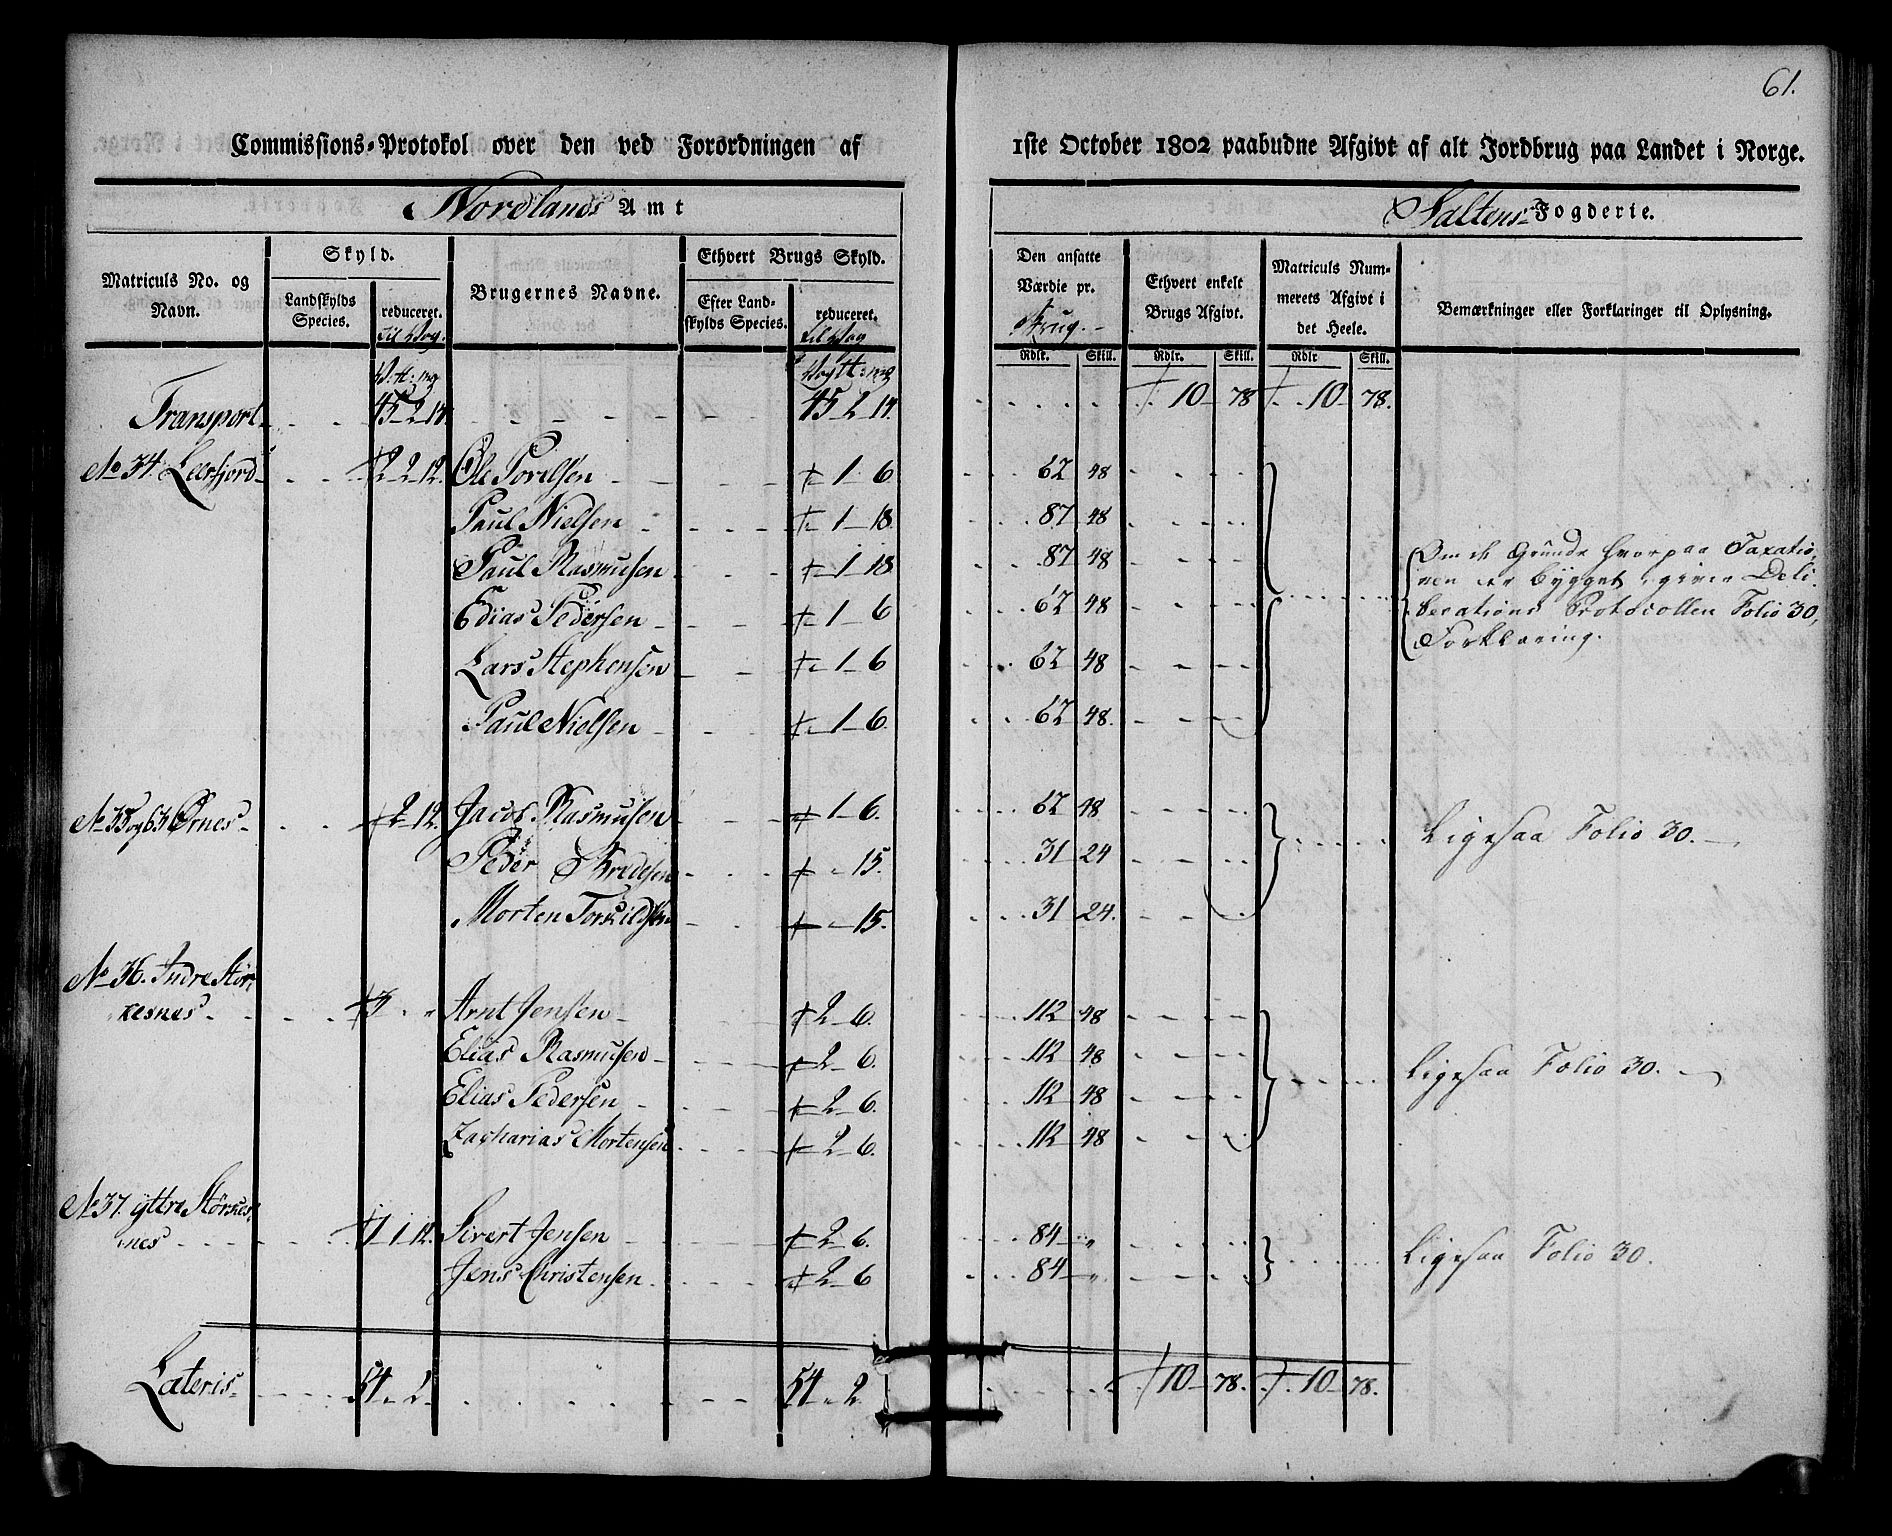 61.
Commissions-Protokol over den ved Forordningen af 1ste October 1802 paabudne Afgivt af alt Jordbrug paa Landet i Norge.
Nordlands Amt
Saltens Fogderie.
Matriculs No. og Navn.
Skyld.
Landskylds Species.
reduceret. til Vog.
Brugernes Navne.
Ethvert Brugs Skyld.
Efter Landskylds Species.
reduceret. til Vog
Den ansatte Værdie pr. Brug.
Ethvert enkelt Brugs Afgivt.
Matriculs Nummerets Afgivt i det Heele.
Bemærkninger eller Forklaringer til Oplysning.
Rdlr. Skill. Rdlr. Skill. Rdlr Skill.
Transport 45 2 14. 45 2 14. 10 78 10 78.
No 34. Leerfjord 2 2 12. Ole 1 6 62 48
Paul Nielsen 1 18. 87 48
Paul Rasmusen 1 18 87 48
Pedersen 1 6 62 48
Lars Stephensen 1 6 62 48
Paul Nielsen 1 6. 62 48.
Om de Grunde hvorpaa Taxatio-
nen er bygget, giver Deli-
berations Protocollen Folio 30,
Forklaring.
No 35 og 63 Ørnes 2 12. Jacob Rasmusen 1 6. 62 48 Ligesaa Folio 30.
Peder 15. 31 24
Morten Torkildsen 15. 31 24.
No 36. Indre Stør-
kesnes 3 " " Arnt Jensen 2 6. 112 48
Elias Rasmusen 2 6. 112 48 Ligesaa Folio 30.
Elias Pedersen 2 6. 112 48
Zacharias Mortensen 2 6. 112 48
No 37. Yttre Størkes-
nes 1 1 12. Sivert Jensen 2 6. 84 " Ligesaa Folio 30.
Jens Christensen 2 6 84 "
Lateris 54 " 2 54 " 2 10 78. 10 78.